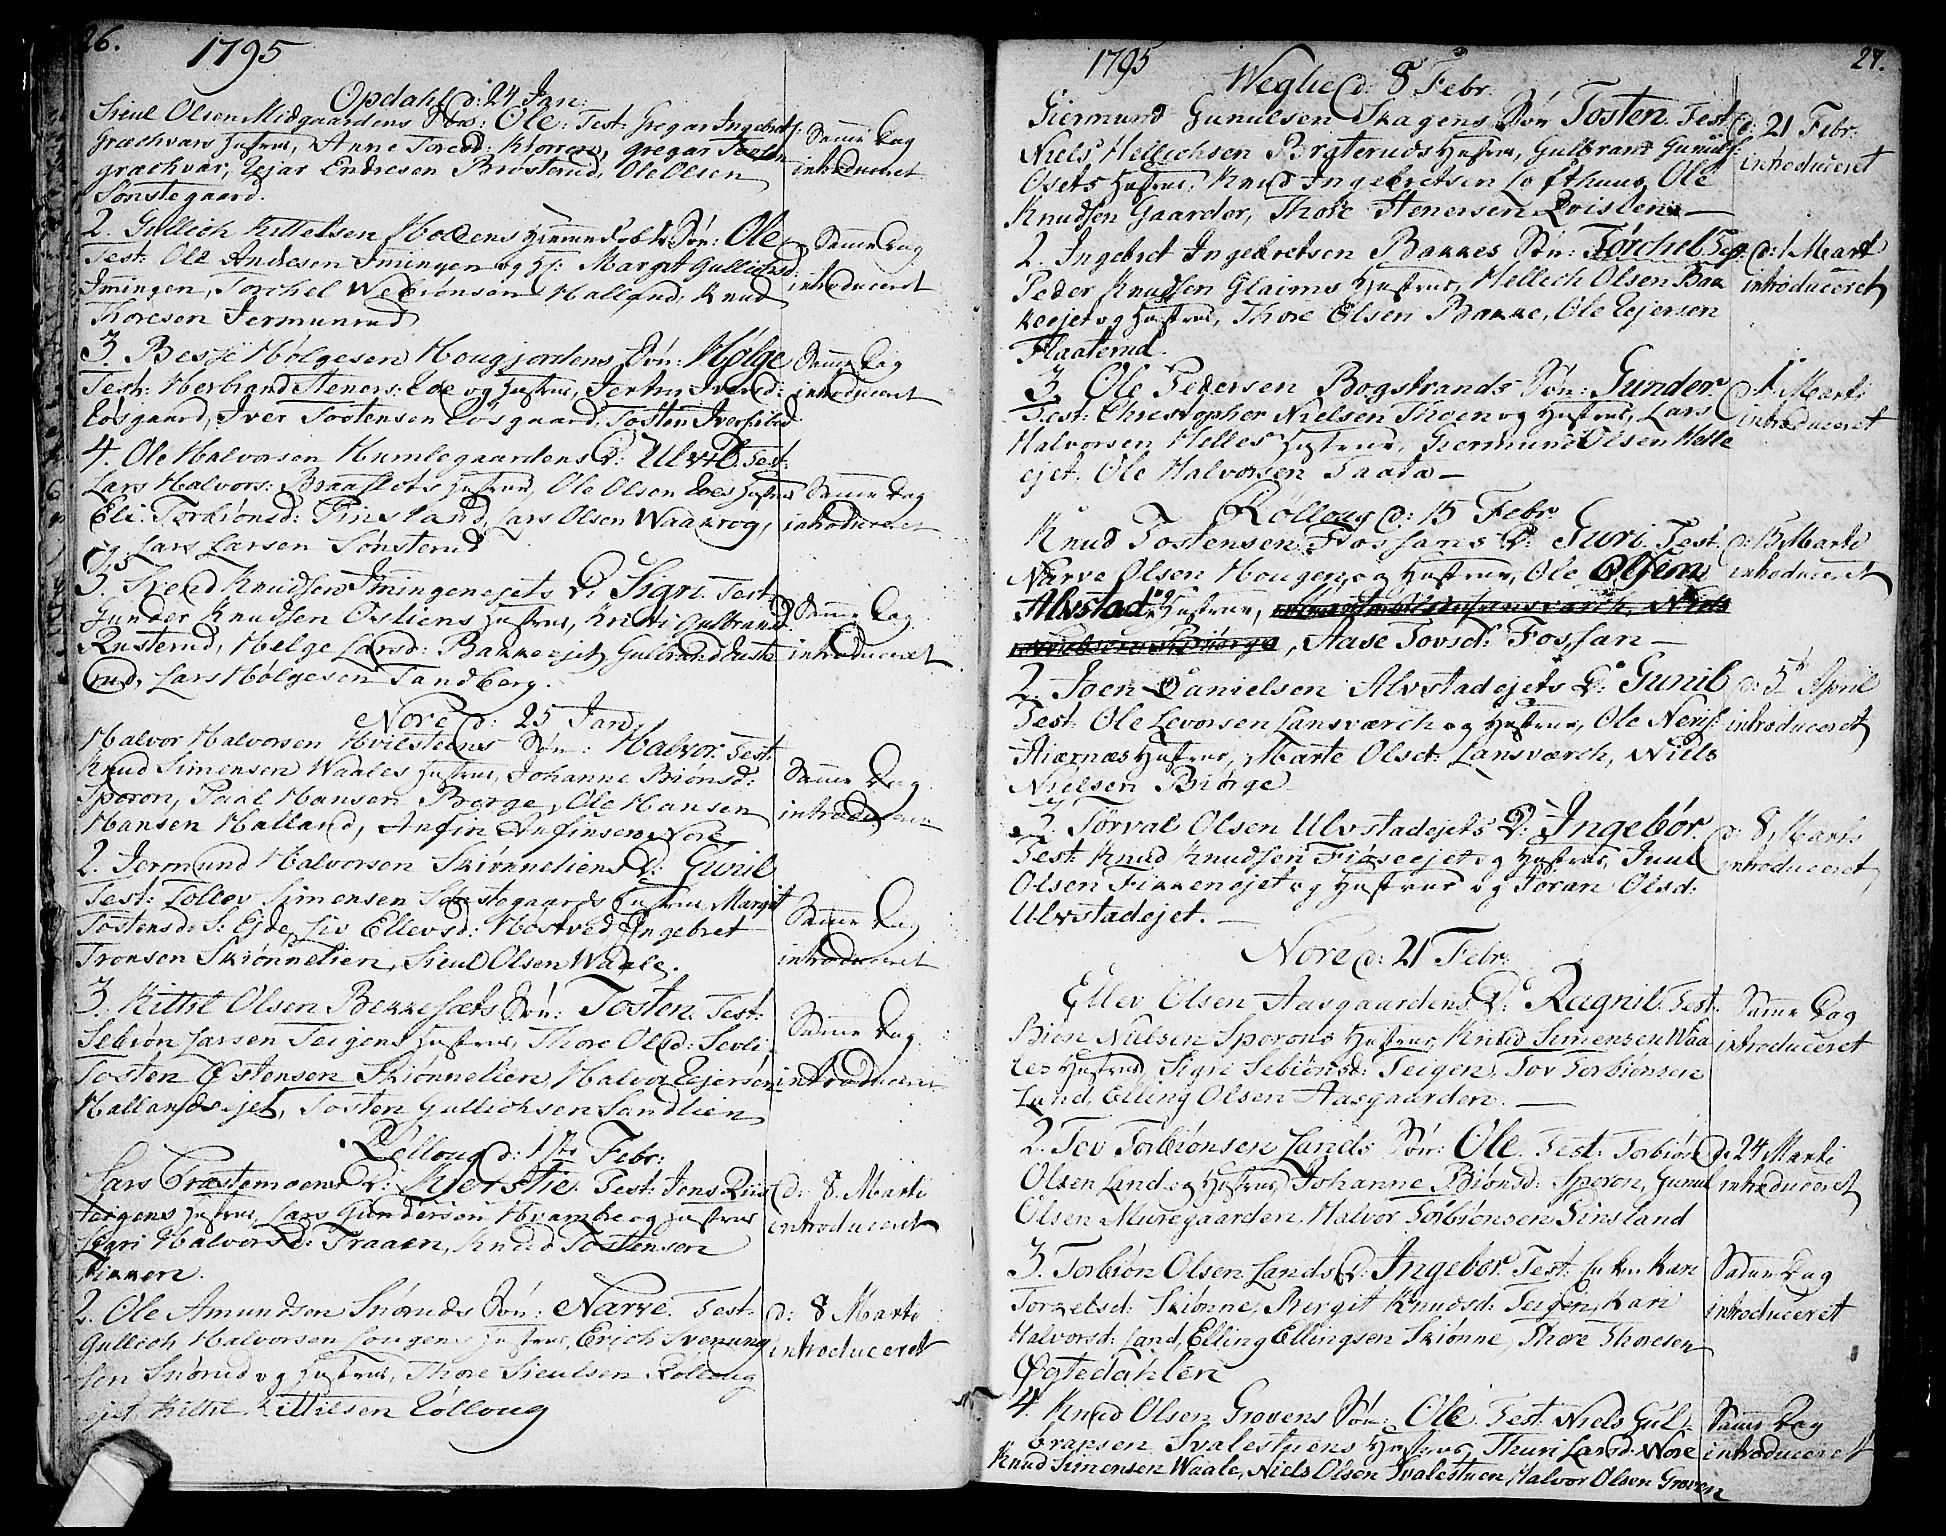 26.
1795
Opdahl d: 24 Jan:
Sieul Olsen Midgaardens Søn: Ole. Test: Gregar Ingebretf:
Grækhvars Hustrue, Anne Torend: Kjorren, Gregar
grækhvar, Ejar Endresen Brøsterud, Ole Olsen
Sønstegaard.
Samme Dag
introduceret
2. Gullich Kittelsen Hodens Søn: Ole
Test: Ole Andesen Imingen og H: Margit Gullichsd:
Imingen, Torchel Webiønsen Halland, Knud
Thoresen Jermunrud
Samme Dag
introduceret
3. Besse Hølgesen Hougjordens Søn: Hølge
Test: Herbrand Steners: Loe og Hustrue, Iversd:
Løsgaard, Iver Tostensen Løsgaard, Tosten Iversen
Samme Dag
introduceret
4. Ole Halvorsen Humlegaardens D: Ulvil. Test:
Lars Halvors: Braaflots Hustrue, Ole Olsen Loes Hustrue
Eli Torbiønsd: Finsland, Lars Olsen Waakrog,
og Lars Larsen Sønsterud
Samme Dag
introduceret
5. Svend Knudsen Imingenejets D: Sigri. Test:
Gunder Knudsen Osliens Hustrue, Kristi Gulbrandsd:
Rusterud, Helge Larsd: Bakkeejet, Gullbrand Ruste
rud, Lars Hølgesen Tandberg.
Samme Dag
introduceret
Nore d: 25 Jan:
Halvor Halvorsen Hvilsteens Søn: Halvor. Test:
Knud Simensen Waales Hustrue, Johanne Biønsd:
Sporon, Paal Hansen Berge, Ole Hansen
Hansen Halland, Anfin Anfinsen Nore
Samme Dag
introduceret
2. Jermund Halvorsen Skiønneliens D: Gunil
Test: Tollev Simensen Sønstegaards Hustrue, Margit
Tostensd: S: Ejde, Liv Ellevsd: Høstved, Ingebret
Tronsen Skiønnelien, Sieul Olsen Waale.
Samme Dag
introduceret
3. Kittil Olsen Bekkesæts Søn: Tosten. Test:
Sebiøn Larsen Teigens Hustrue, Thore Olsd: Sevli,
Tosten Østensen Skiønnelien, Halvor Ejersen
Hallandsejet, Tosten Gullichsen Sandlien
Samme Dag
introduceret
Rølloug d: 1ste Febr:
Lars Træstemoens D: Kierstie. Test: Jens Riis
teigens Hustrue, Lars Gundersen Hvambe og Hustrue
Kari Halvorsd: Traaen, Knud Tostensen
Fikken.
d: 8 Marti
introduceret
2. Ole Amundsen Snøruds Søn: Narve. Test:
Gullich Halvorsen Lougens Hustrue, Erich Svenung
sen Snørud og Hustrue, Thore Sieulsen Rolloug
ejet, Kittil Kittilsen Rølloug
d: 8 Marti
introduceret
27.
1795
Weglie d: 8 Febr.
Giermund Gunulsen Skagens Søn Tosten. Test:
Niels Hellichsen Bryteruds Hustrue, Gulbrand Gunulf:
Osets Hustrue, Knud Ingebretsen Lofthuus, Ole
Knudsen Gaarder, Thore Stenersen Qvisten —
d: 21 Febr.
introduceret
2. Ingebret Ingebretsen Bakkes Søn: Torchel. Test:
Peder Knudsen Glaims Hustrue, Hellich Olsen Bak
keejet og Hustrue, Thore Olsen Bakke, Ole Ejersen
Flaaterud.
d: 1 Mart
introduceret
3. Ole Pedersen Bogstrands Søn: Gunder.
Test: Christopher Nielsen Thoen og Hustrue, Lars
Halvorsen Helles Hustrue, Giermund Olsen Helle
ejet, Ole Halvorsen Taata —
d: 1 Marti
introduceret
Rølloug d: 15 Febr
Knud Tostensen Fossans D: Guri. Test:
Narve Olsen Hougen og Hustrue, Ole Olsen
Alvstad og Hustrue, Niels
Nielsen Biørge, Aase Tovsd: Fossan —
d: 8 Marti
introduceret
2. Joen Danielsen Alvstadejets D: Gunil
Test: Ole Levorsen Lansværch og Hustrue, Ole Nerif:
Stiærnæs Hustrue, Marte Olsd: Lansværch, Niels
Nielsen Biørge
d: 5t April
introduceret
3. Torval Olsen Ulvstadejets D: Ingebør.
Test: Knud Knudsen Fiøseejet og Hustrue, Juul
Olsen Fikkenejet og Hustrue og Joran Olsd:
Ulvstadejet. —
d: 8 Marti
introduceret
Nore d: 21 Febr:
Ellev Olsen Aasgaardens D: Ragnil. Test:
Biøn Nielsen Sporons Hustrue, Knud Simensen Waa
les Hustrue, Sigri Sebiønsd: Teigen, Tov Torbiønsen
Land, Elling Olsen Aasgaarden. —
Samme Dag
introduceret
2. Tov Torbiønsen Lands Søn: Ole. Test: Torbiøn
Olsen Land og Hustrue, Johanne Biønsd: Sporon, Gunul
Olsen Muregaarden, Halvor Torbiønsen Finsland
d: 24 Marti
introduceret
3. Torbiøn Olsen Lands D: Ingebør. Test: Enken Kari
Torkelsd: Skiønne, Bergit Knudsd: Teigen, Kari
Halvorsd: Land, Elling Ellingsen Skiønne, Thore Thoresen
Øgtedahlen
Samme Dag
introduceret
4. Knud Olsen Grovens Søn: Ole. Test: Niels Gul:
bransen Svalestuens Hustrue, Thuri Larsd: Nore
Knud Simensen Waale, Niels Olsen Svalestuen, Halvor Olsen Groven
Samme Dag
introduceret